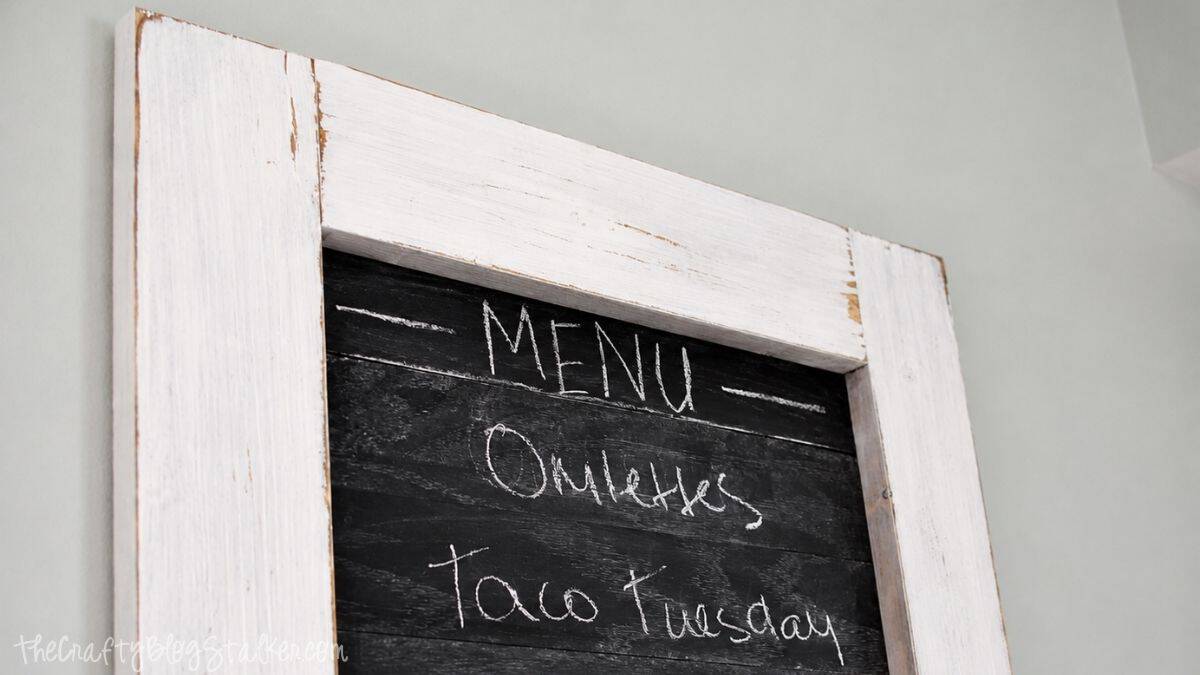 — MENU —
Omlettes
Taco Tuesday
theCraftyBlogStalker.com